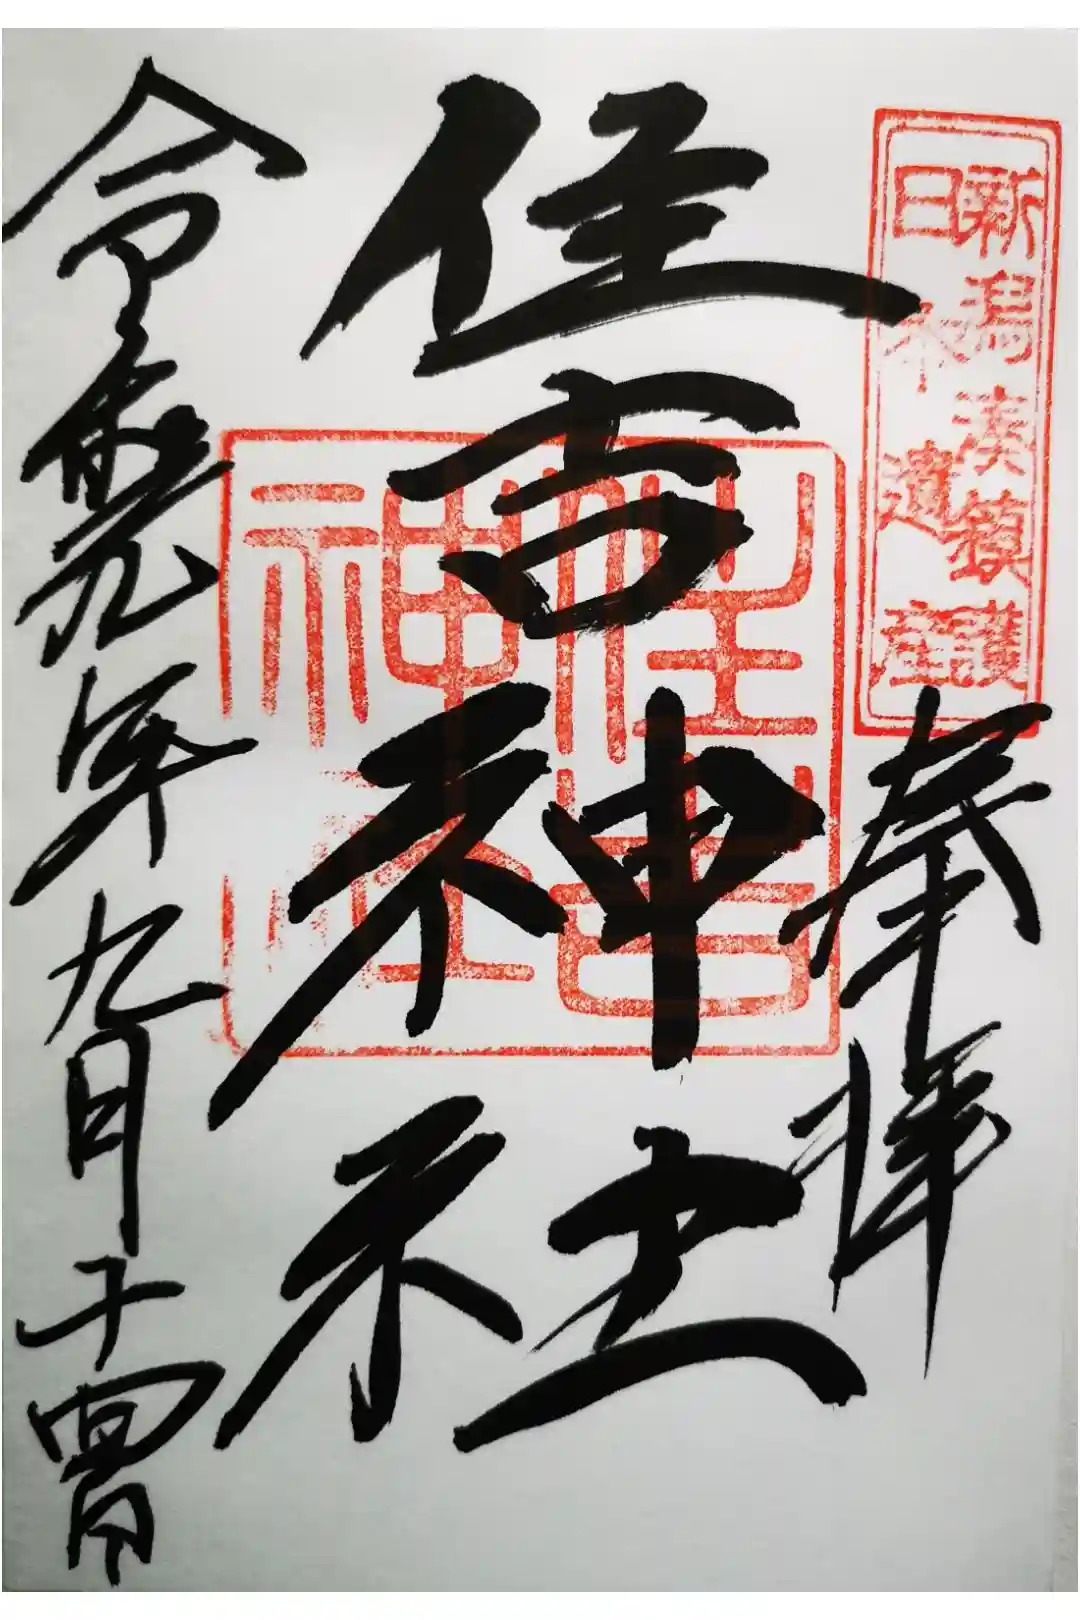 新潟湊鎮護
日本遺産
奉拝
住吉神社
住吉
神社
令和元年九月十四日